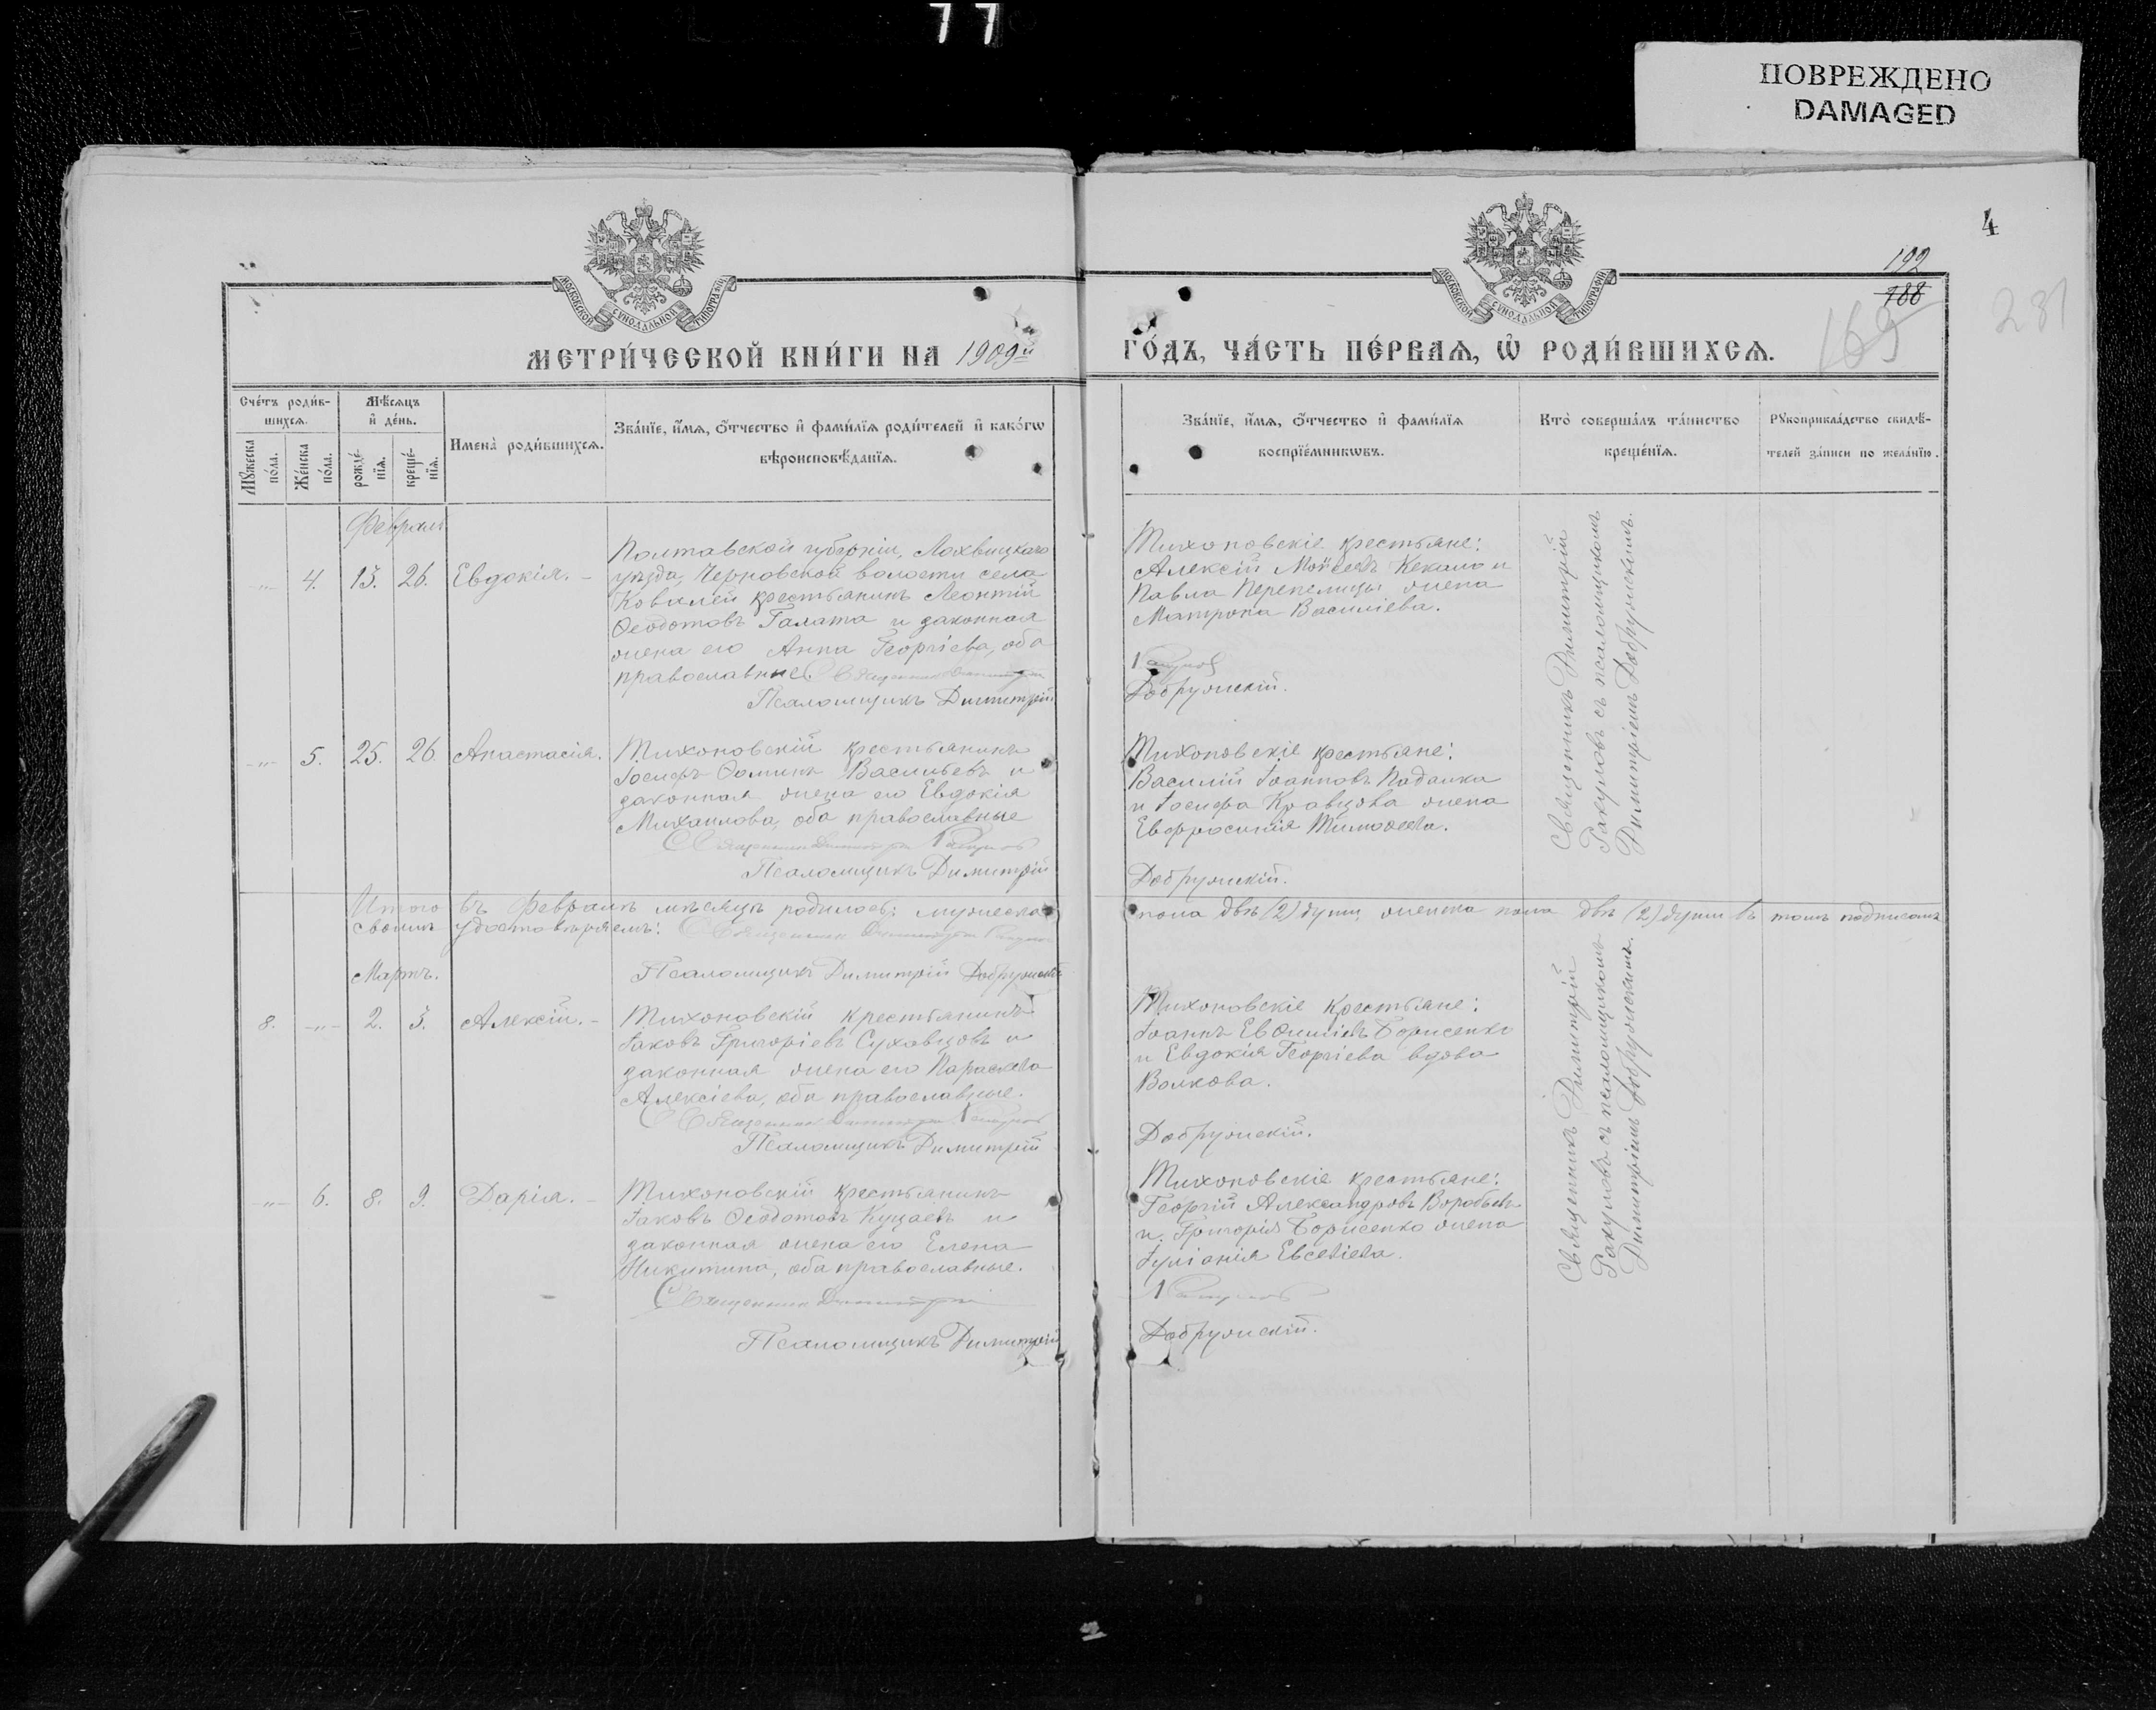 77
ПОВРЕЖДЕНО
DAMAGED
4
192
188
169
281
МОСКОВСКОЙ СУНОДАЛЬНОЙ ТИПОГРАФІИ
МОСКОВСКОЙ СУНОДАЛЬНОЙ ТИПОГРАФІИ
МЕТРИ́ЧЕСКОЙ КНИ́ГИ НА 1909й
ГО́ДЪ, ЧА́СТЬ ПЕ́РВАѦ, Ѡ҆ РОДИ́ВШИХСѦ.
Сче́тъ роди́в-
шихсѧ.
Мꙋ́жеска по́ла.
Же́нска по́ла.
Мѣ́сѧцъ
и҆ де́нь.
рожде́-нїѧ.
креще́-нїѧ.
Имена̀ роди́вшихсѧ.
Зва́нїе, и҆́мѧ, ѻ҆́тчество и҆ фами́лїѧ роди́телей и҆ како́гѡ
вѣроисповѣ́данїѧ.
Зва́нїе, и҆́мѧ, ѻ҆́тчество и҆ фами́лїѧ
воспрїе́мникѡвъ.
Кто̀ соверша́лъ та́инство
креще́нїѧ.
Рꙋкоприкла́дство свидѣ́-
телей за́писи по жела́нїю.
Февраль
-"- 4. 13. 26. Евдокія. -
Полтавской губерніи, Лохвицкаго
уѣзда, Черновской волости села
Ковалей крестьянинъ Леонтій
Ѳеодотовъ Галата и законная
жена его Анна Георгіева, оба
православные. Священникъ Димитрій
Псаломщикъ Димитрій
Тихоновскіе крестьяне:
Алексій Моисеевъ Кекало и
Павла Перепелицы жена
Матрона Василіева.
Ракуловъ
Добружскій.
Священникъ Димитрій
Ракуловъ съ псаломщикомъ
Димитріемъ Добружскимъ.
-"- 5. 25. 26. Анастасія.
Тихоновскій крестьянинъ
Іосифъ Ѳоминъ Васильевъ и
законная жена его Евдокія
Михаилова, оба православные
Священникъ Димитрій Ракуловъ
Псаломщикъ Димитрій
Тихоновскіе крестьяне:
Василій Іоанновъ Падалка
и Іосифа Кравцова жена
Евфросинія Тимоѳеева.
Добружскій.
Итого въ Февралѣ мѣсяцѣ родилось: мужеска пола двѣ (2) души, женска пола двѣ (2) души въ томъ подписомъ
своимъ удостовѣряемъ: Священникъ Димитрій Ракуловъ
Псаломщикъ Димитрій Добружскій
Мартъ.
8. -"- 2. 3. Алексій. -
Тихоновскій крестьянинъ
Іаковъ Григоріевъ Сухавцовъ и
законная жена его Параскева
Алексіева, оба православные.
Священникъ Димитрій Ракуловъ
Псаломщикъ Димитрій
Тихоновскіе крестьяне:
Іоаннъ Евѳиміевъ Борисенко
и Евдокія Георгіева вдова
Волкова.
Добружскій.
Священникъ Димитрій
Ракуловъ съ псаломщикомъ
Димитріемъ Добружскимъ.
-"- 6. 8. 9. Дарія. -
Тихоновскій крестьянинъ
Іаковъ Ѳеодотовъ Куцаевъ и
законная жена его Елена
Никитина, оба православные.
Священникъ Димитрій
Псаломщикъ Димитрій
Тихоновскіе крестьяне:
Георгій Александровъ Воробьевъ
и Григорія Борисенко жена
Іуліанія Евсевіева.
Ракуловъ
Добружскій.